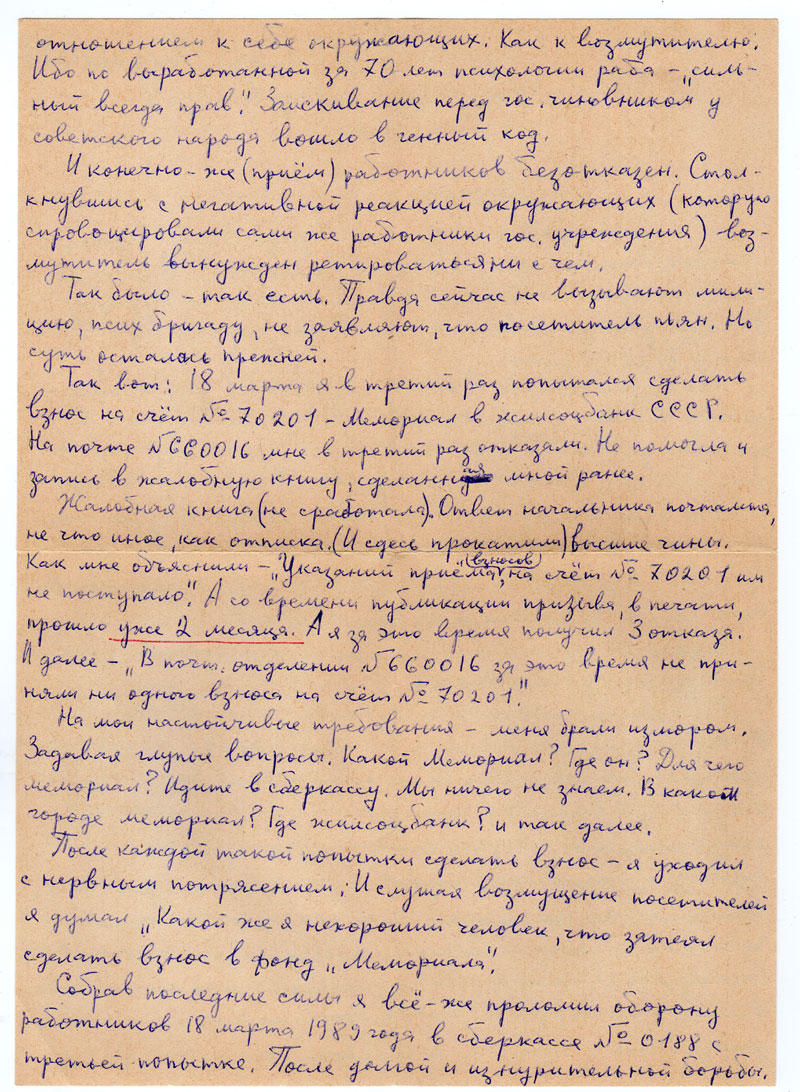 отношением к себе окружающих. Как к возмутителю.
Ибо по выработанной за 70 лет психологии раба – „силь-
ный всегда прав". Заискивание перед гос. чиновником у
советского народа вошло в генный код.
И конечно-же (приём) работников безотказен. Стол-
кнувшись с негативной реакцией окружающих (которую
спровоцировали сами же работники гос. учреждения) – воз-
мутитель вынужден ретироваться ни с чем.
Так было – так есть. Правда сейчас не вызывают мили-
цию, псих бригаду, не заявляют, что посетитель пьян. Но
суть осталась прежней.
Так вот: 18 марта я в третий раз попытался сделать
взнос на счёт № 70201 – Мемориал в жилсоцбанк СССР.
На почте №660016 мне в третий раз отказали. Не помогла и
запись в жалобную книгу, сделанная мной ранее.
Жалобная книга (не сработала). Ответ начальника почтамта,
не что иное, как отписка. (И сдесь прокатили) высшие чины.
Как мне объяснили – „Указаний приёма взносов на счёт № 70201 им
не поступало". А со времени публикации призыва, в печати,
прошло уже 2 месяца. А я за это время получил 3 отказа.
И далее – „В почт. отделении №660016 за это время не при-
няли ни одного взноса на счёт № 70201."
На мои настойчивые требования – меня брали измором.
Задавая глупые вопросы. Какой Мемориал? Где он? Для чего
мемориал? Идите в сберкассу. Мы ничего не знаем. В каком
городе мемориал? Где жилсоцбанк? и так далее.
После каждой такой попытки сделать взнос – я уходил
с нервным потрясением. И слушая возмущение посетителей
я думал „Какой же я нехороший человек, что затеял
сделать взнос в фонд „Мемориала".
Собрав последние силы я всё-же проломил оборону
работников 18 марта 1989 года в сберкассе № 0188 с
третьей попытке. После долгой и изнурительной борьбы.